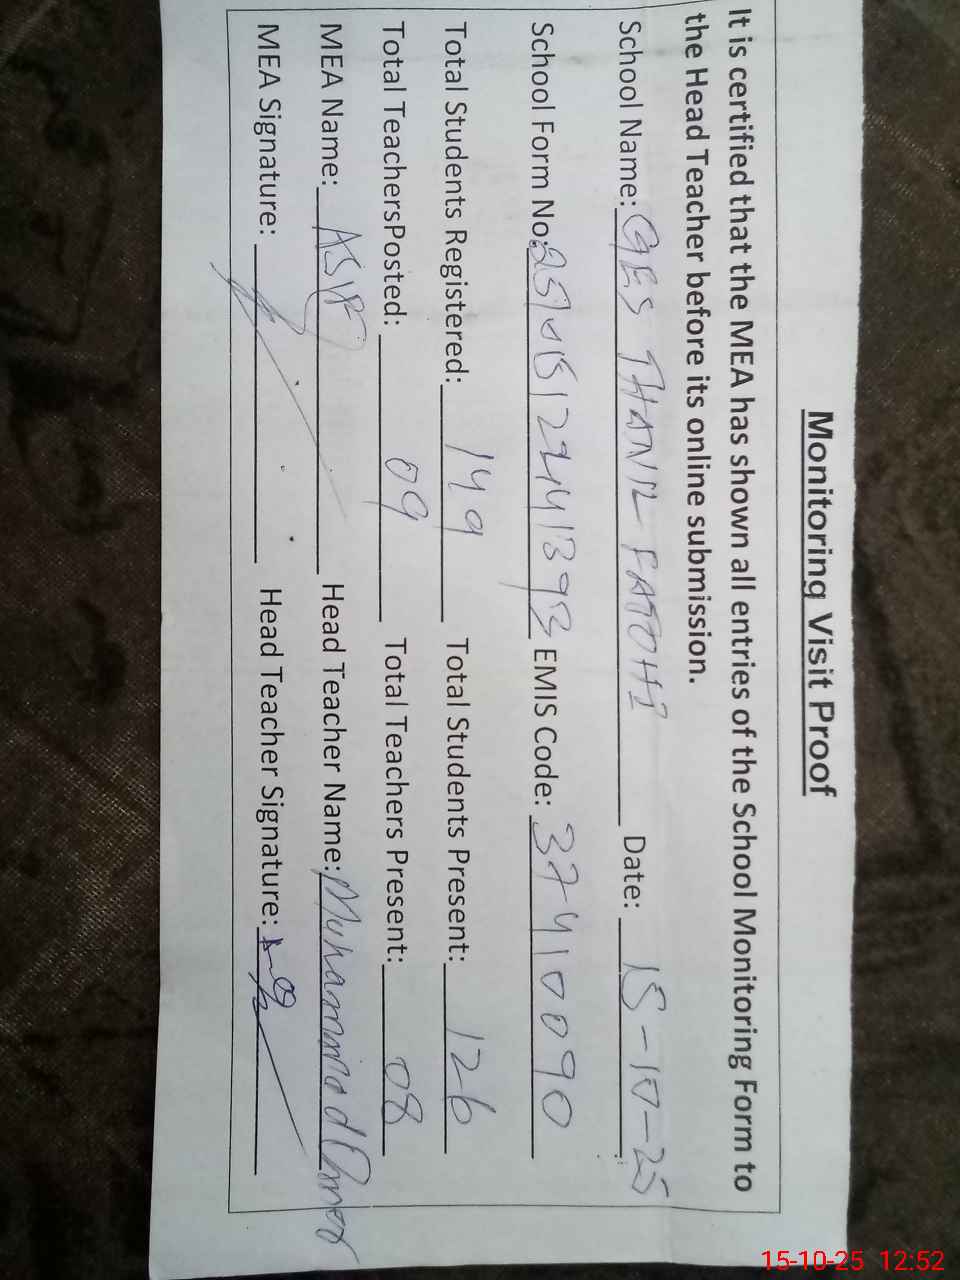 Monitoring Visit Proof
It is certified that the MEA has shown all entries of the School Monitoring Form to
the Head Teacher before its online submission.
School Name: GES THANIL FATOHI Date: 15-10-25
School Form No: EMIS Code: 37410090
Total Students Registered: 149 Total Students Present: 126
Total TeachersPosted: 09 Total Teachers Present: 08
MEA Name: ASIF Head Teacher Name: Muhammad
MEA Signature: Head Teacher Signature:
15-10-25 12:52